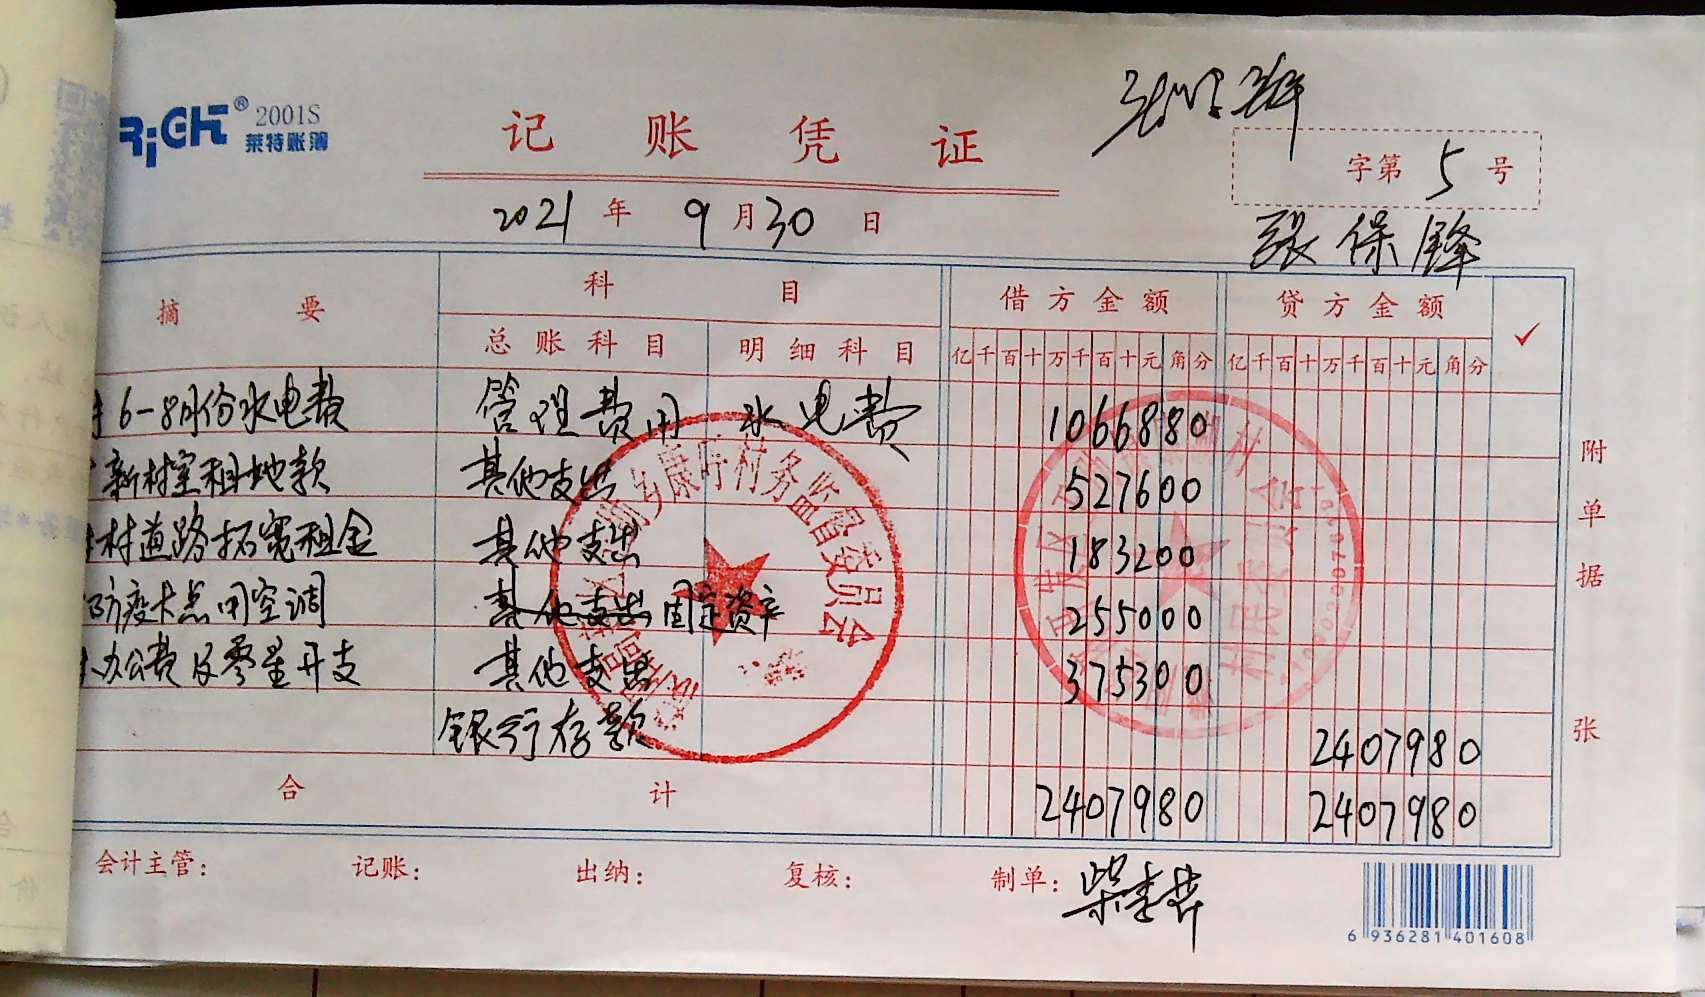 RiGHT® 2001S
莱特账簿
记账凭证
字第 5 号
2021 年 9 月 30 日
张保锋
摘要 科目 借方金额 贷方金额 ✓
总账科目 明细科目 亿千百十万千百十元角分 亿千百十万千百十元角分
6-8月份水电费 管理费用 水电费 1066880
新村室租地款 其他支出 527600
村道路拓宽租金 其他支出 183200
防疫卡点用空调 其他支出 固定资产 255000
办公费及零星开支 其他支出 375300
银行存款 2407980
合计 2407980 2407980
附单据 张
村务监督委员会
会计主管: 记账: 出纳: 复核: 制单:
6 936281 401608